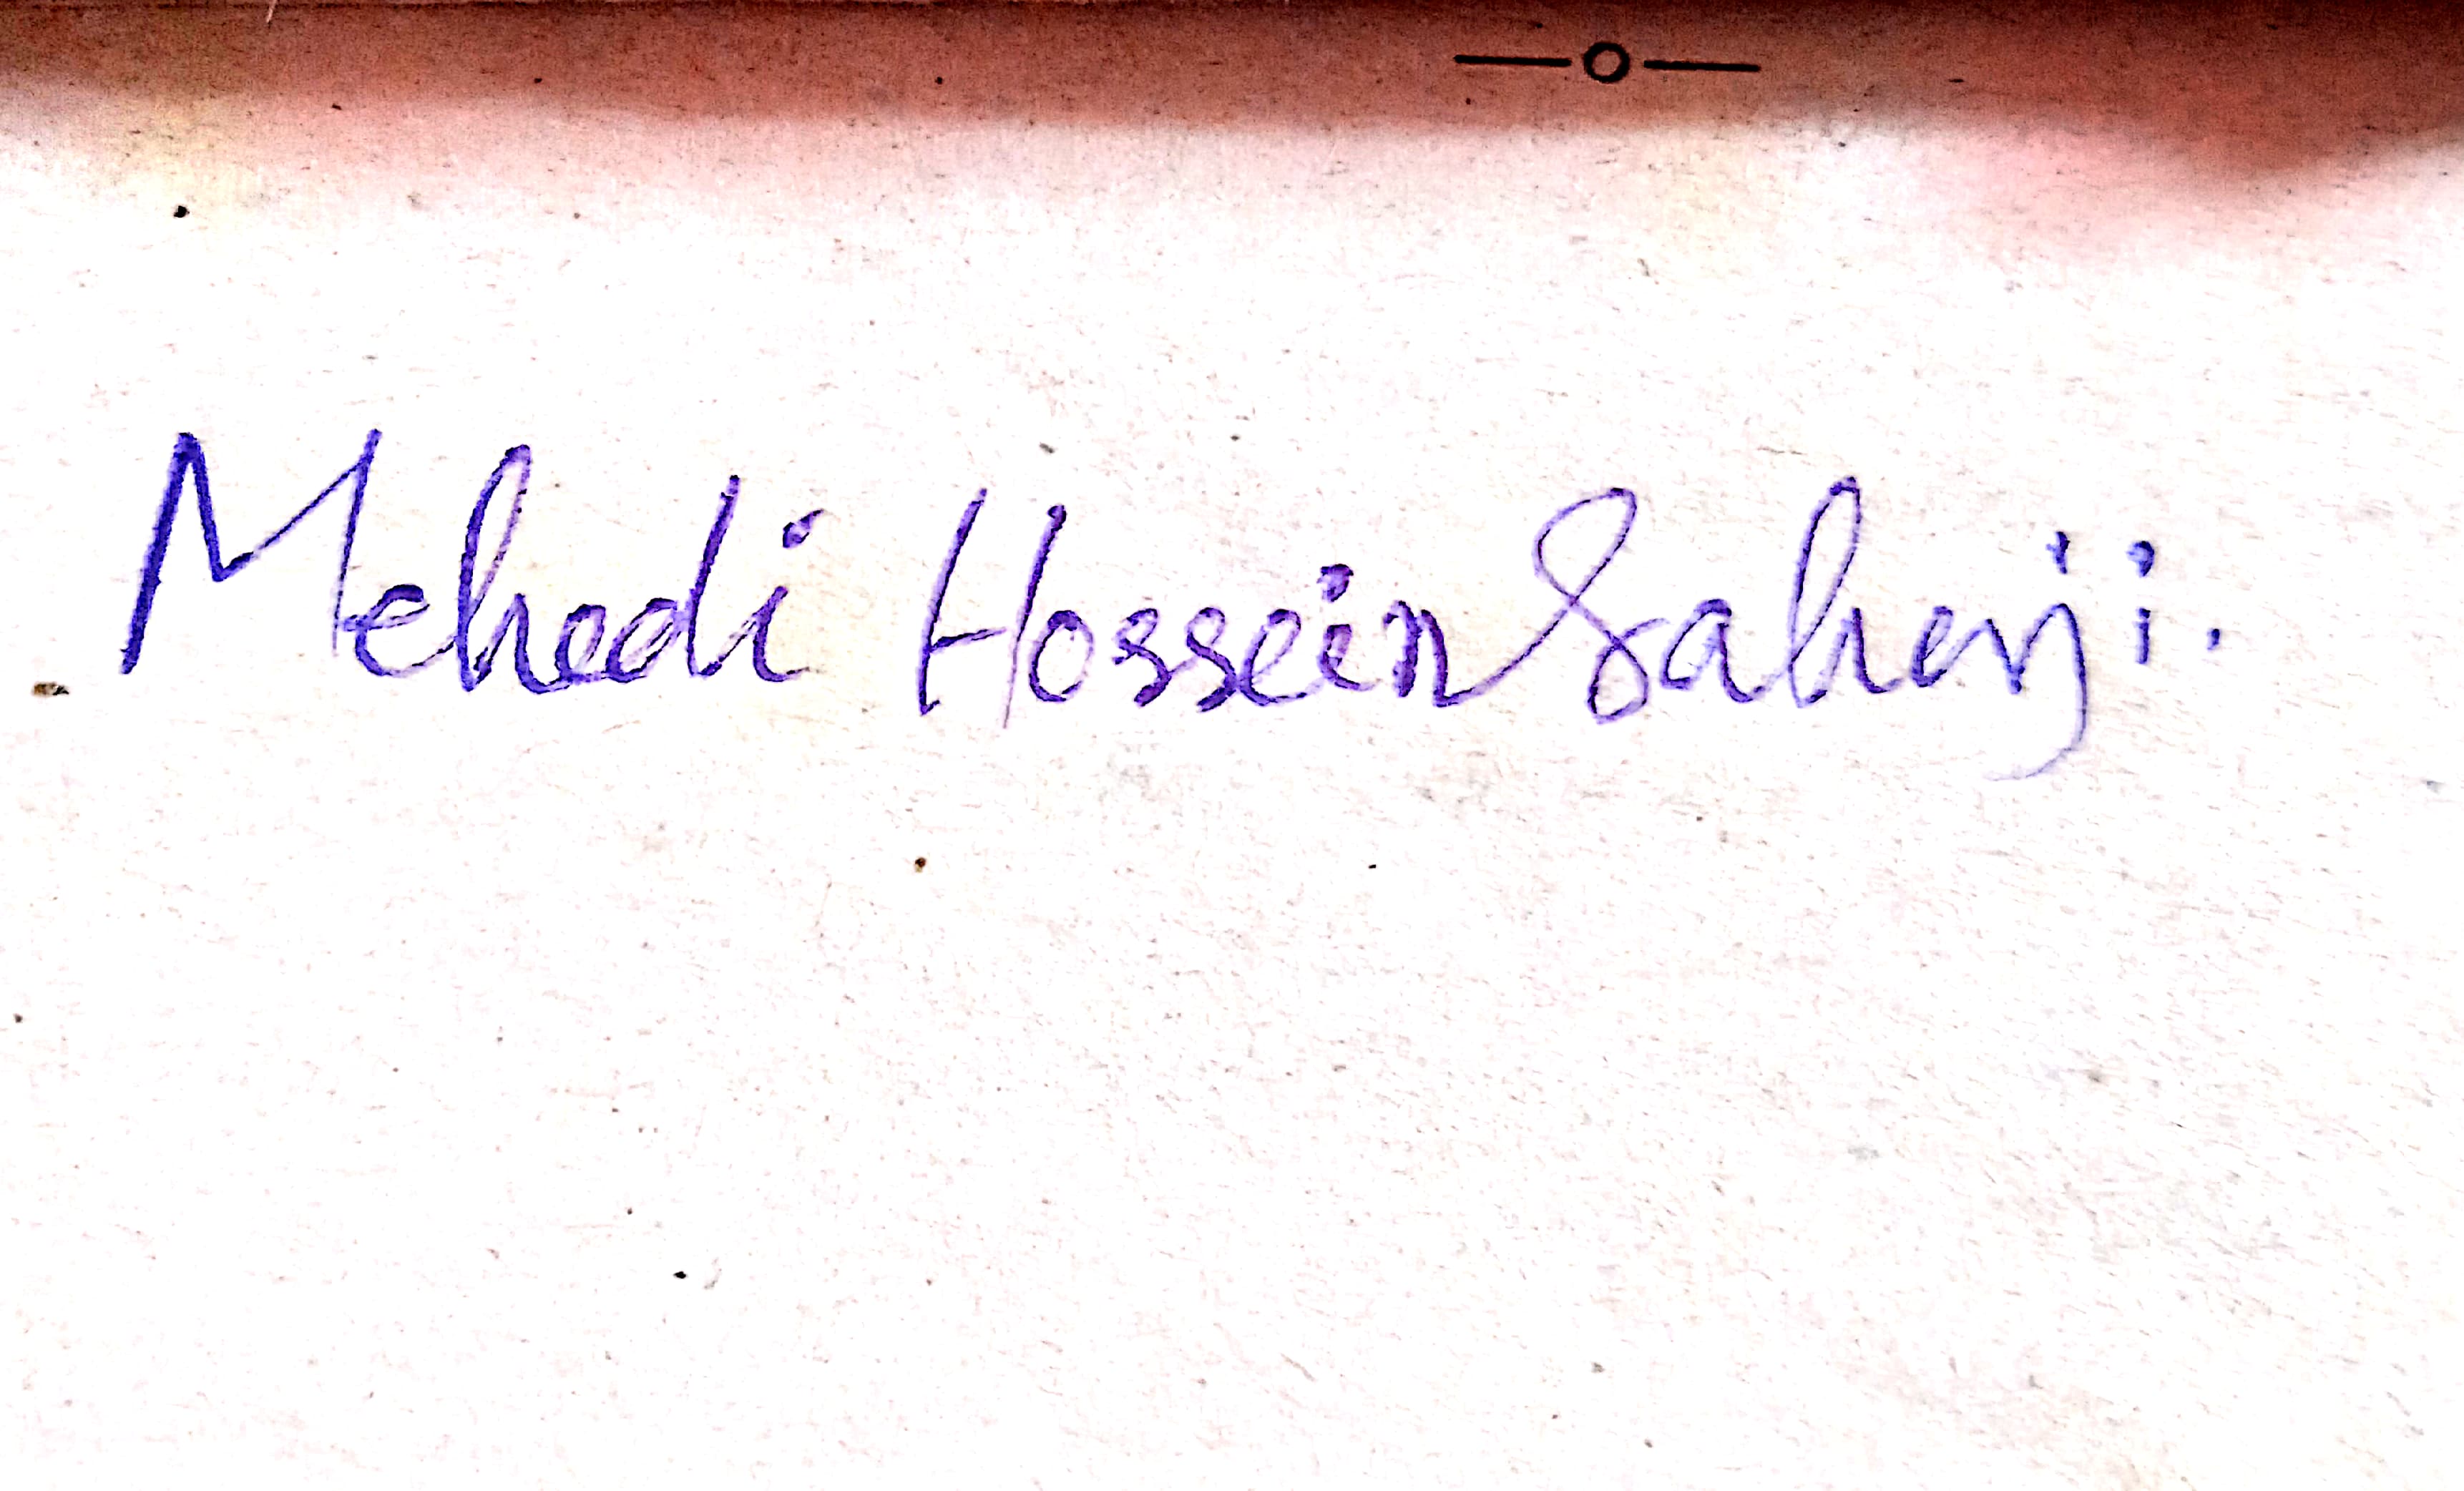 Mehedi Hossein Saherji.